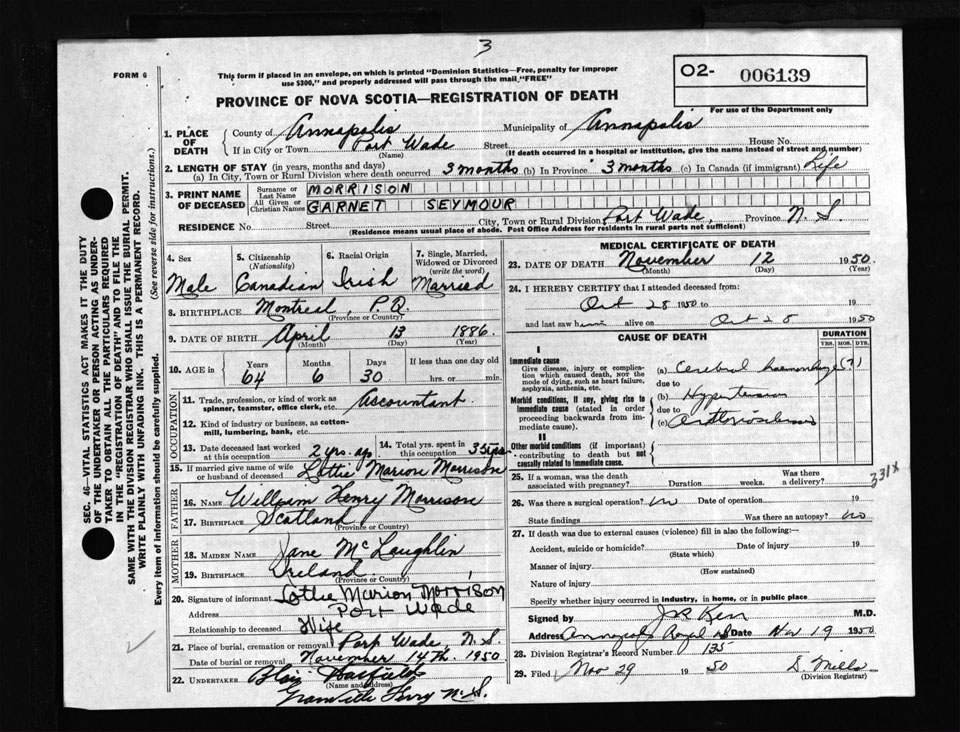 3
FORM 6
This form if placed in an envelope, on which is printed "Dominion Statistics—Free, penalty for improper use $300," and properly addressed will pass through the mail "FREE"
O2- 006139
For use of the Department only
PROVINCE OF NOVA SCOTIA—REGISTRATION OF DEATH
SEC. 46—VITAL STATISTICS ACT MAKES IT THE DUTY
OF THE UNDERTAKER OR PERSON ACTING AS UNDER-
TAKER TO OBTAIN ALL THE PARTICULARS REQUIRED
IN THE "REGISTRATION OF DEATH" AND TO FILE THE
SAME WITH THE DIVISION REGISTRAR WHO SHALL ISSUE THE BURIAL PERMIT.
WRITE PLAINLY WITH UNFADING INK. THIS IS A PERMANENT RECORD.
Every item of information should be carefully supplied. (See reverse side for instructions.)
1. PLACE OF DEATH
County of Annapolis Municipality of Annapolis
If in City or Town Port Wade Street House No.
(Name) (If death occurred in a hospital or institution, give the name instead of street and number)
2. LENGTH OF STAY (in years, months and days)
(a) In City, Town or Rural Division where death occurred 3 months (b) In Province 3 months (c) In Canada (if immigrant) Life
3. PRINT NAME OF DECEASED
Surname or Last Name MORRISON
All Given or Christian Names GARNET SEYMOUR
RESIDENCE No. Street City, Town or Rural Division Port Wade, Province N.S.
(Residence means usual place of abode. Post Office Address for residents in rural parts not sufficient)
4. Sex Male
5. Citizenship (Nationality) Canadian
6. Racial Origin Irish
7. Single, Married, Widowed or Divorced (write the word) Married
8. BIRTHPLACE Montreal, P.Q.
(Province or Country)
9. DATE OF BIRTH April 13 1886
(Month) (Day) (Year)
10. AGE in Years 64 Months 6 Days 30 If less than one day old hrs. or min.
OCCUPATION
11. Trade, profession, or kind of work as spinner, teamster, office clerk, etc. Accountant
12. Kind of industry or business, as cotton-mill, lumbering, bank, etc.
13. Date deceased last worked at this occupation 2 yrs. ago
14. Total yrs. spent in this occupation 35 yrs
15. If married give name of wife or husband of deceased Lottie Marion Morrison
FATHER
16. NAME William Henry Morrison
17. BIRTHPLACE Scotland
(Province or Country)
MOTHER
18. MAIDEN NAME Jane McLaughlin
19. BIRTHPLACE Ireland
(Province or Country)
20. Signature of informant Lottie Marion Morrison
Address Port Wade
Relationship to deceased Wife
21. Place of burial, cremation or removal Port Wade, N.S.
Date of burial or removal November 14th. 1950
22. UNDERTAKER Blair
(Name and Address)
Granville Ferry N.S.
MEDICAL CERTIFICATE OF DEATH
23. DATE OF DEATH November 12 1950.
(Month) (Day) (Year)
24. I HEREBY CERTIFY that I attended deceased from:
Oct 28 1950 to 19
and last saw him alive on Oct 28 1950
CAUSE OF DEATH
DURATION
YRS. MOS. DYS.
I
Immediate cause
Give disease, injury or complication which caused death, not the mode of dying, such as heart failure, asphyxia, asthenia, etc.
(a) Cerebral haemorrhage (?)
due to
Morbid conditions, if any, giving rise to immediate cause (stated in order proceeding backwards from immediate cause).
(b) Hypertension
due to
(c) Arteriosclerosis
II
Other morbid conditions (if important) contributing to death but not causally related to immediate cause.
331X
25. If a woman, was the death associated with pregnancy? Duration weeks. Was there a delivery?
26. Was there a surgical operation? no Date of operation 19
State findings Was there an autopsy? no
27. If death was due to external causes (violence) fill in also the following:—
Accident, suicide or homicide? Date of injury 19
(State which)
Manner of injury
(How sustained)
Nature of injury
Specify whether injury occurred in industry, in home, or in public place
Signed by Kerr M.D.
Address Annapolis Royal NS Date Nov 19 1950
28. Division Registrar's Record Number 135
29. Filed Nov 29 1950 S. Mills
(Division Registrar)